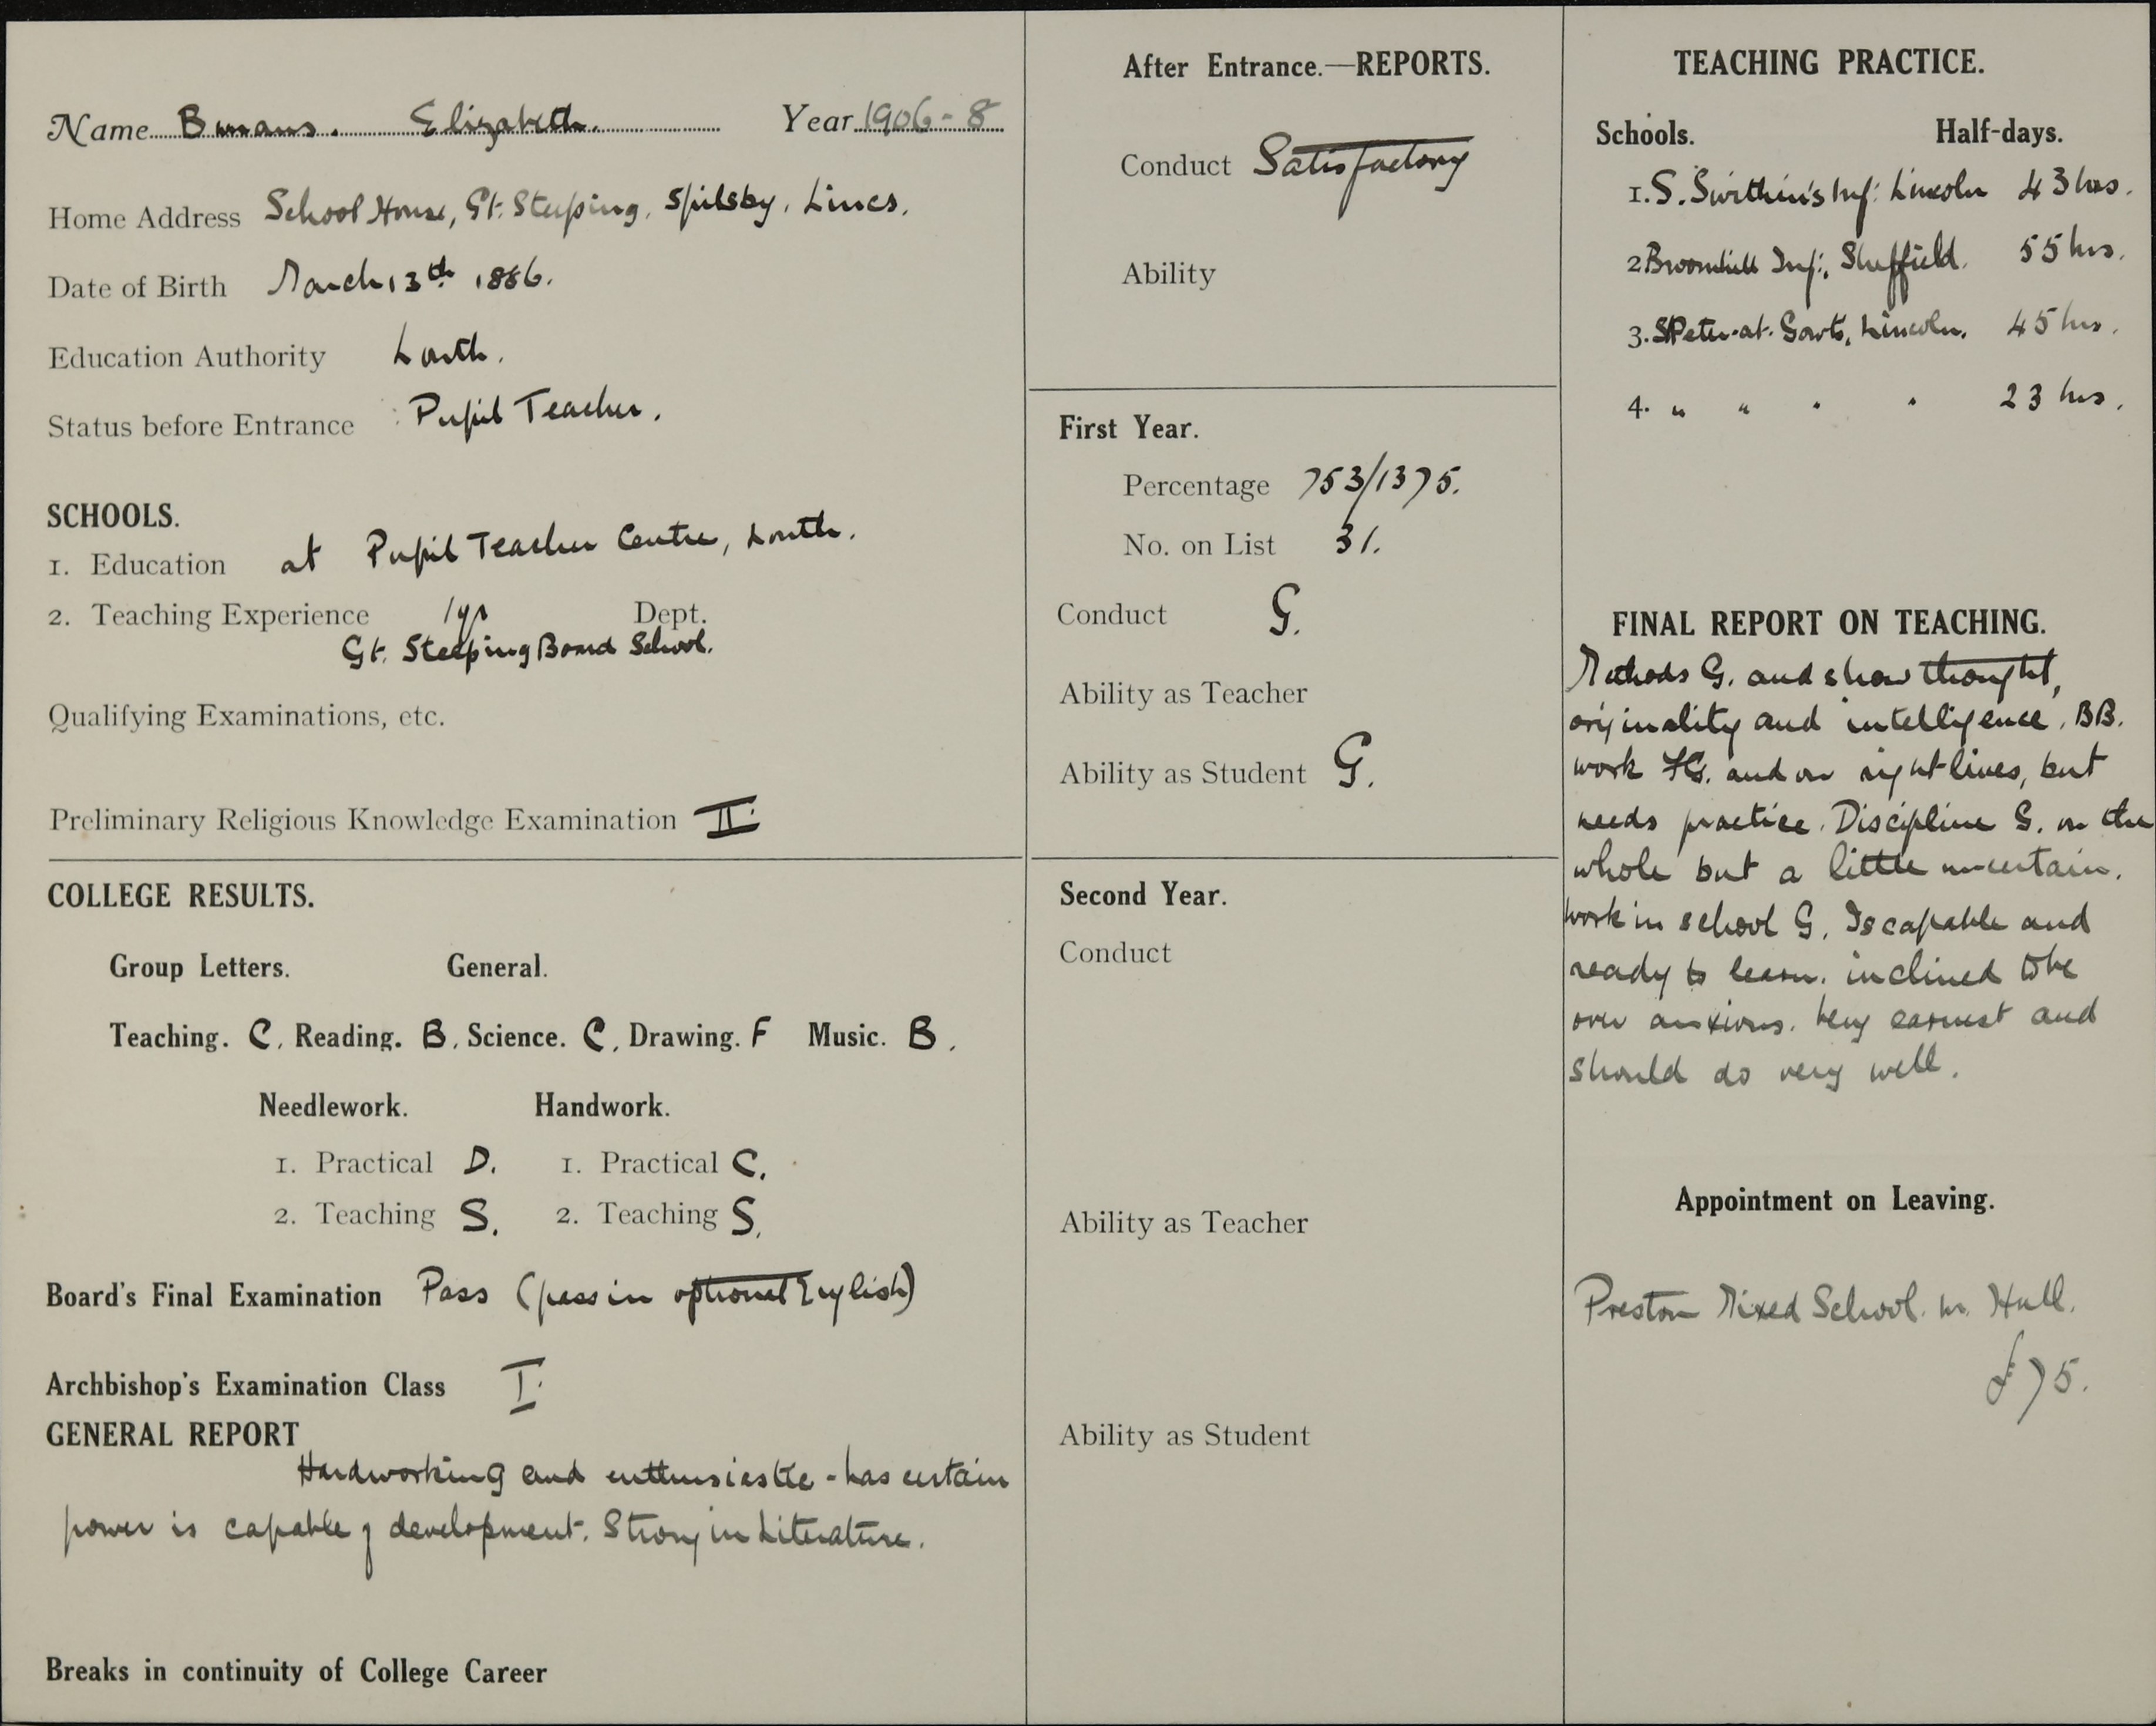 Name Bmans. Elizabeth. Year 1906-8
Home Address School House, Gt. Steeping, Spilsby, Lincs.
Date of Birth March 13th 1886.
Education Authority Louth.
Status before Entrance Pupil Teacher.
SCHOOLS.
1. Education at Pupil Teacher Centre, Louth.
2. Teaching Experience 1yr Dept.
Gt. Steeping Board School.
Qualifying Examinations, etc.
Preliminary Religious Knowledge Examination II.
COLLEGE RESULTS.
Group Letters. General.
Teaching. C. Reading. B. Science. C. Drawing. F Music. B.
Needlework. Handwork.
1. Practical D. 1. Practical C.
2. Teaching S. 2. Teaching S.
Board's Final Examination Pass (pass in optional English)
Archbishop's Examination Class I.
GENERAL REPORT
Hardworking and enthusiastic - has certain
power is capable of development. Strong in Literature.
Breaks in continuity of College Career
After Entrance.—REPORTS.
Conduct Satisfactory
Ability
First Year.
Percentage 753/1375.
No. on List 31.
Conduct G.
Ability as Teacher
Ability as Student G.
Second Year.
Conduct
Ability as Teacher
Ability as Student
TEACHING PRACTICE.
Schools. Half-days.
1. S. Swithin's Inf: Lincoln 43 hrs.
2 Broomhill Inf:, Sheffield. 55 hrs.
3. S Peter-at-Gowts, Lincoln. 45 hrs.
4. " " " " 23 hrs.
FINAL REPORT ON TEACHING.
Methods G. and show thought,
originality and intelligence. BB.
work FG. and on right lines, but
needs practice. Discipline G. on the
whole but a little uncertain.
Work in school G. Is capable and
ready to learn. inclined to be
over anxious. Very earnest and
should do very well.
Appointment on Leaving.
Preston Mixed School. nr. Hull.
£75.